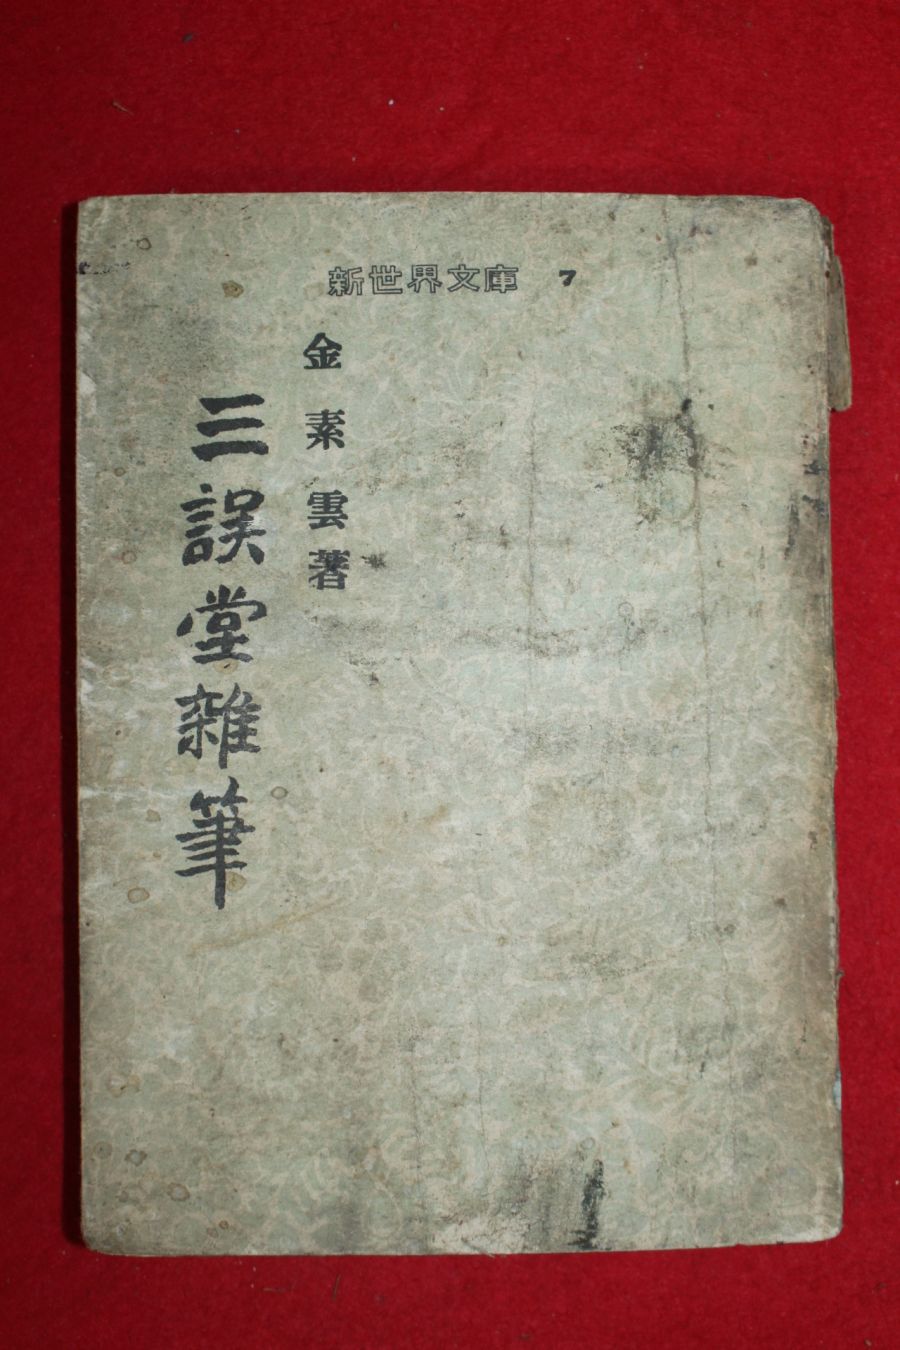 新世界文庫 7
金素雲著
三誤堂雜筆